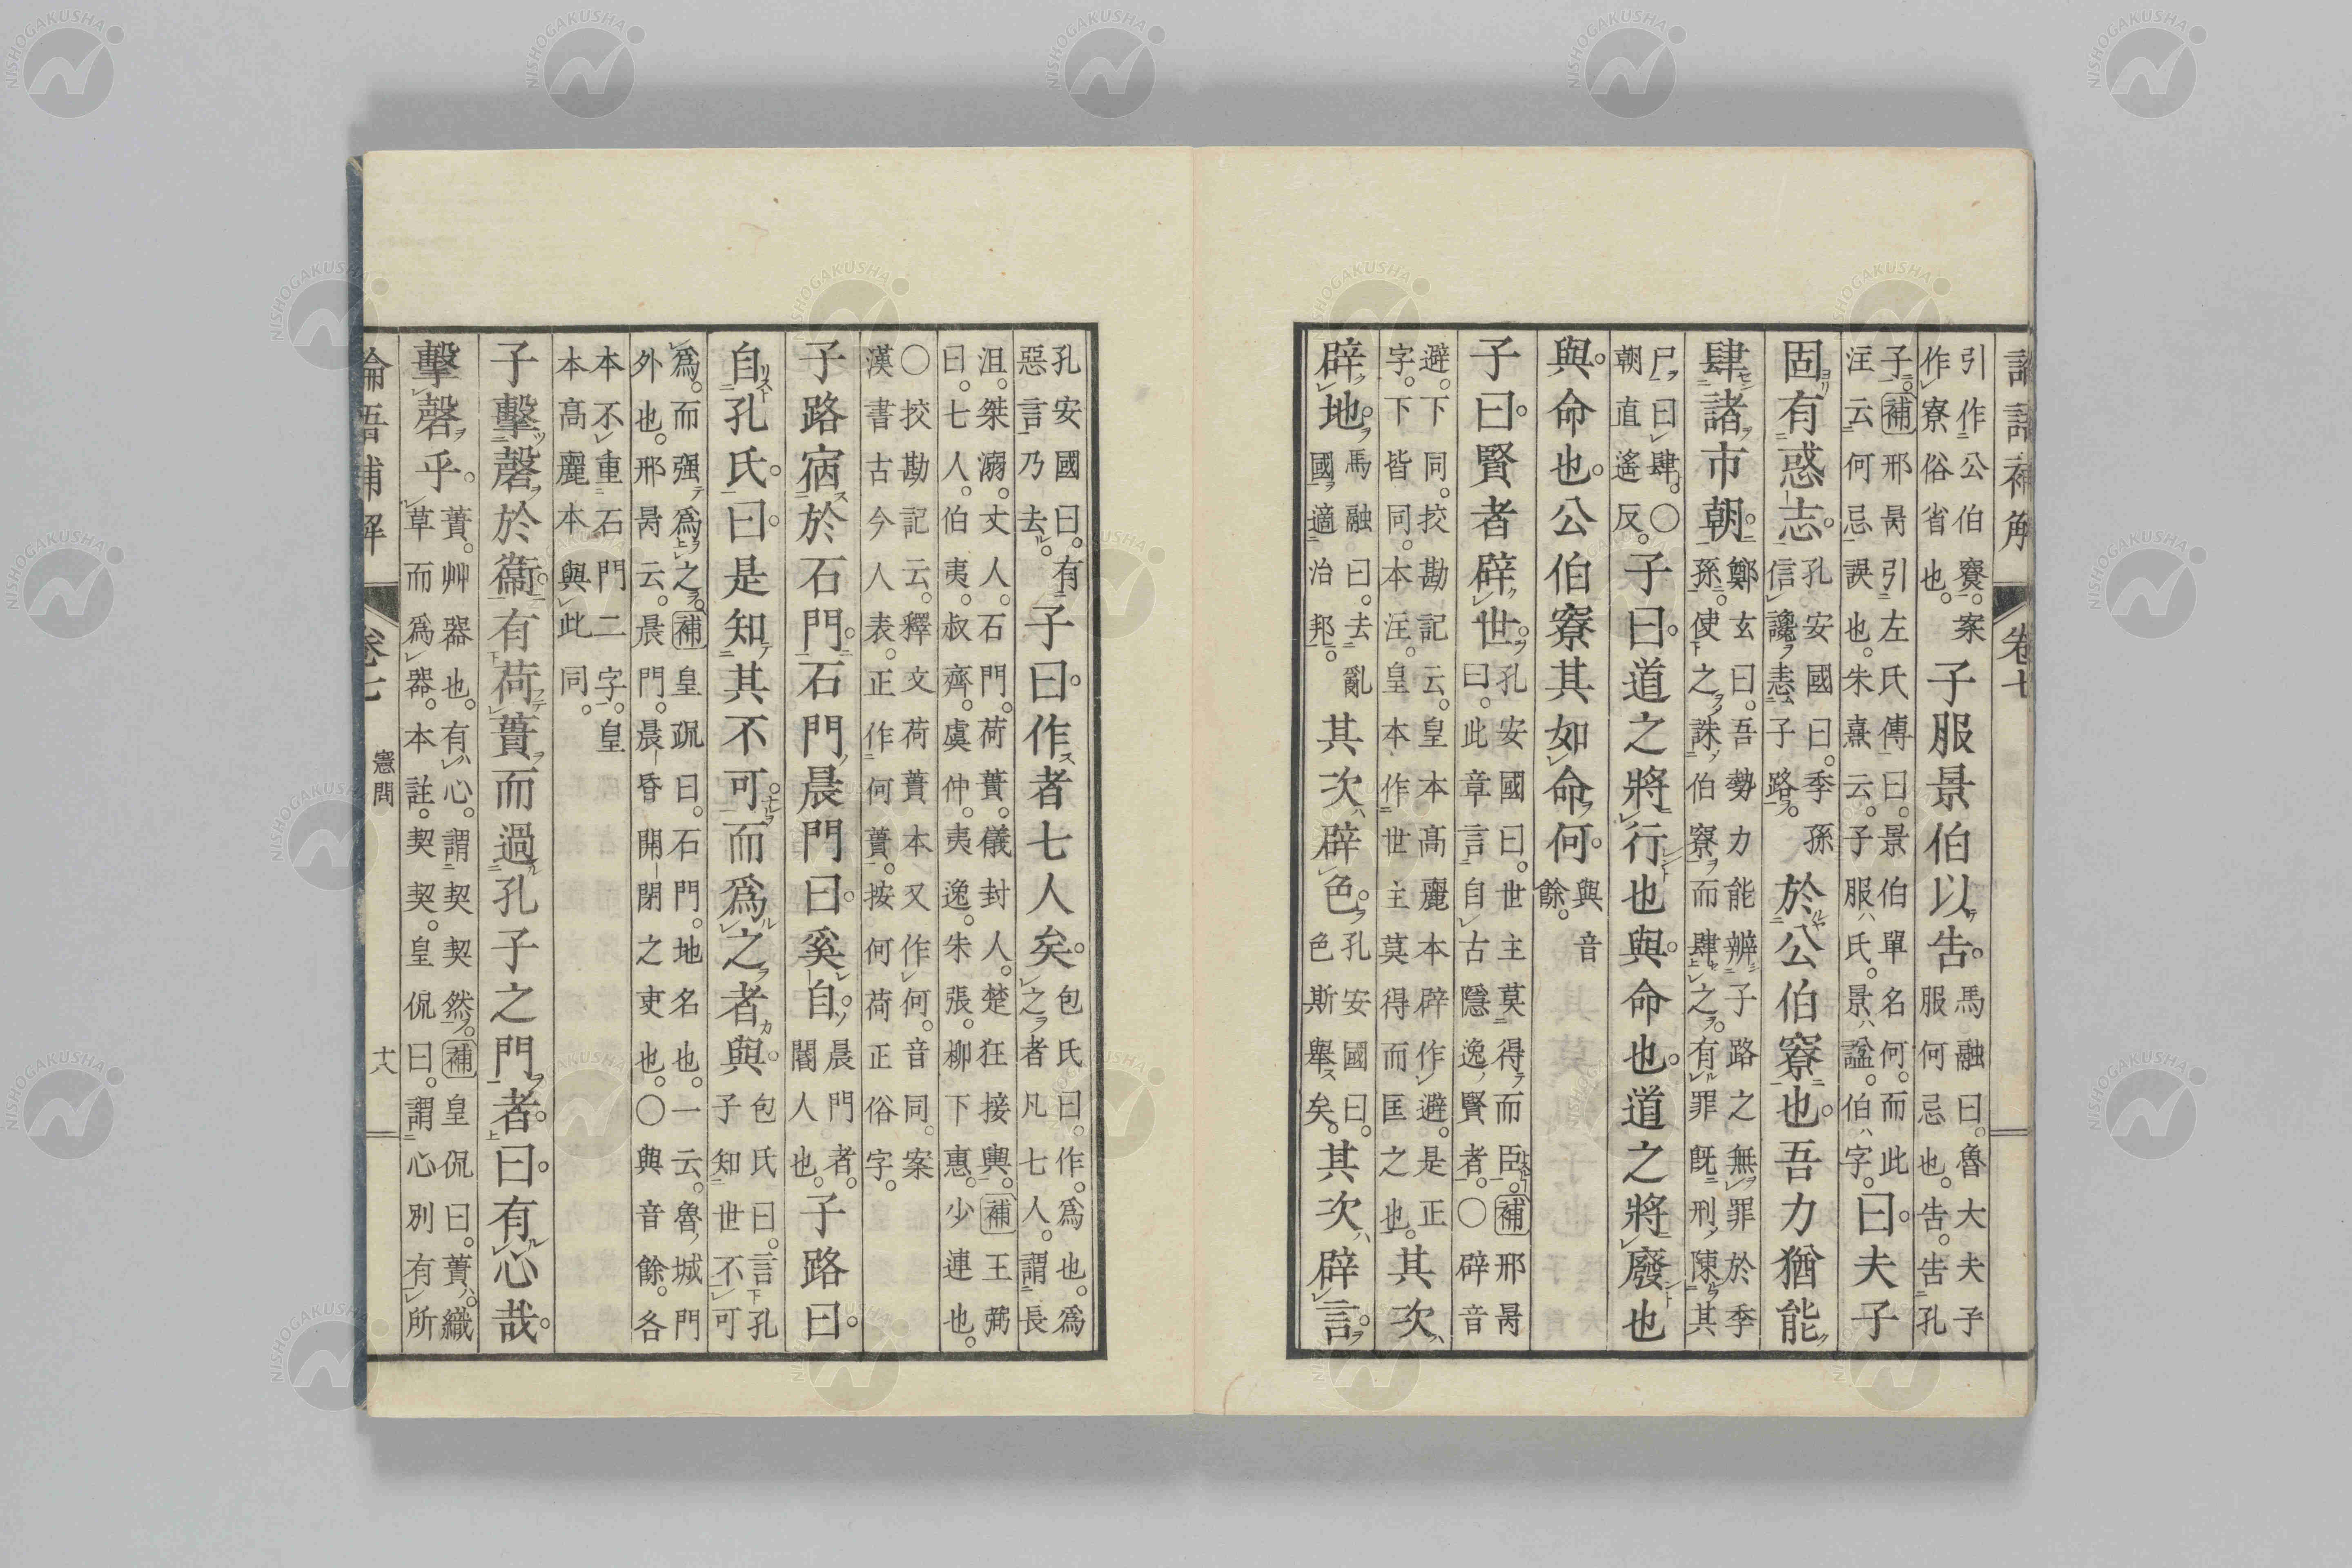 論語補解 卷七
引作公伯賽案
作寮俗省也
子服景伯以告。
馬融曰。魯大夫子
服何忌也。告。告孔
子。補邢昺引左氏傳曰。景伯單名何。而此
注云何忌誤也。朱熹云。子服氏。景諡。伯字。
曰。夫子
固有惑志。
孔安國曰。季孫
信讒恚子路。
於公伯寮也。吾力猶能
肆諸市朝。
鄭玄曰。吾勢力能辨子路之無罪於季
孫。使之誅伯寮而肆之。有罪旣刑陳其
尸曰肆。○
朝直遙反。
子曰。道之將行也與。命也。道之將廢也
與。命也。公伯寮其如命何。
與音
餘。
子曰。賢者辟世。
孔安國曰。世主莫得而臣。補邢昺
曰。此章言自古隱逸賢者。○辟音
避。下同。挍勘記云。皇本高麗本辟作避。是正
字。下皆同。本注。皇本作世主莫得而匡之也。
其次
辟地。
馬融曰。去亂
國適治邦。
其次辟色。
孔安國曰。
色斯舉矣。
其次辟言。
孔安國曰。有
惡言乃去。
子曰。作者七人矣。
包氏曰。作。爲也。爲
之者凡七人。謂長
沮。桀溺。丈人。石門。荷蕢。儀封人。楚狂接輿。補王弼
曰。七人。伯夷。叔齊。虞仲。夷逸。朱張。柳下惠。少連也。
○挍勘記云。釋文荷蕢本又作何。音同。案
漢書古今人表。正作何蕢。按何荷正俗字。
子路宿於石門。石門晨門曰。奚自。
晨門者。
閽人也。
子路曰。
自孔氏。曰。是知其不可而爲之者與。
包氏曰。言孔
子知世不可
爲。而强爲之。補皇疏曰。石門。地名也。一云。魯城門
外也。邢昺云。晨門。晨昏開閉之吏也。○與音餘。各
本不重石門二字。皇
本高麗本與此同。
子擊磬於衞。有荷蕢而過孔子之門者。曰。有心哉。
擊磬乎。
蕢。艸器也。有心。謂契契然。補皇侃曰。蕢。織
草而爲器。本註。契契。皇侃曰。謂心別有所
論語補解 卷七 憲問 十八
NISHOGAKUSHA